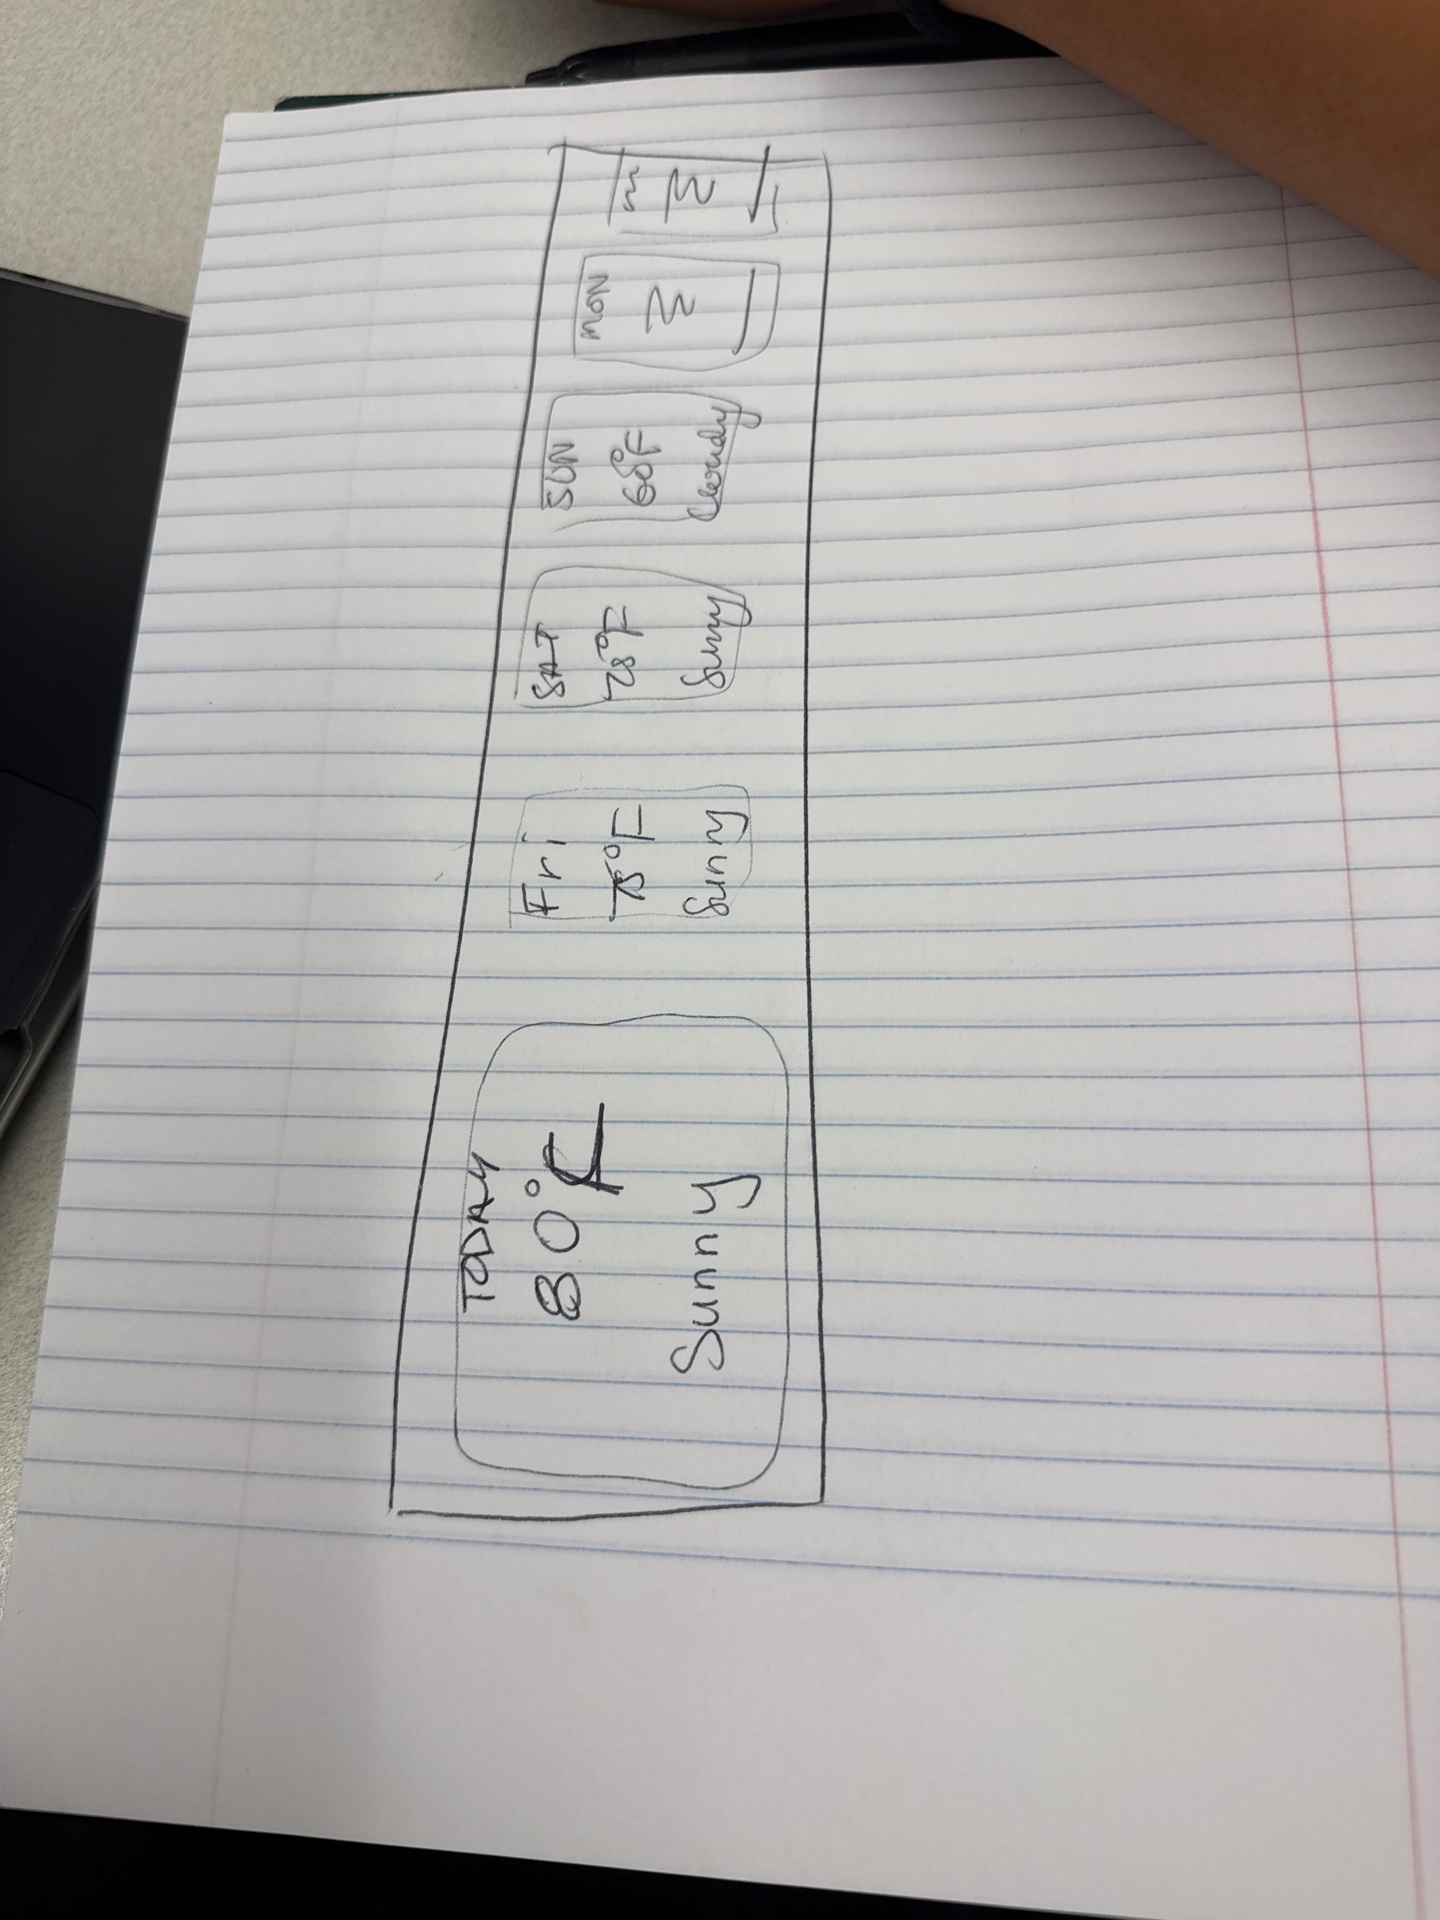 TODAY
80°F
Sunny
Fri
75°F
Sunny
SAT
78°F
Sunny
SUN
60°F
Cloudy
MON